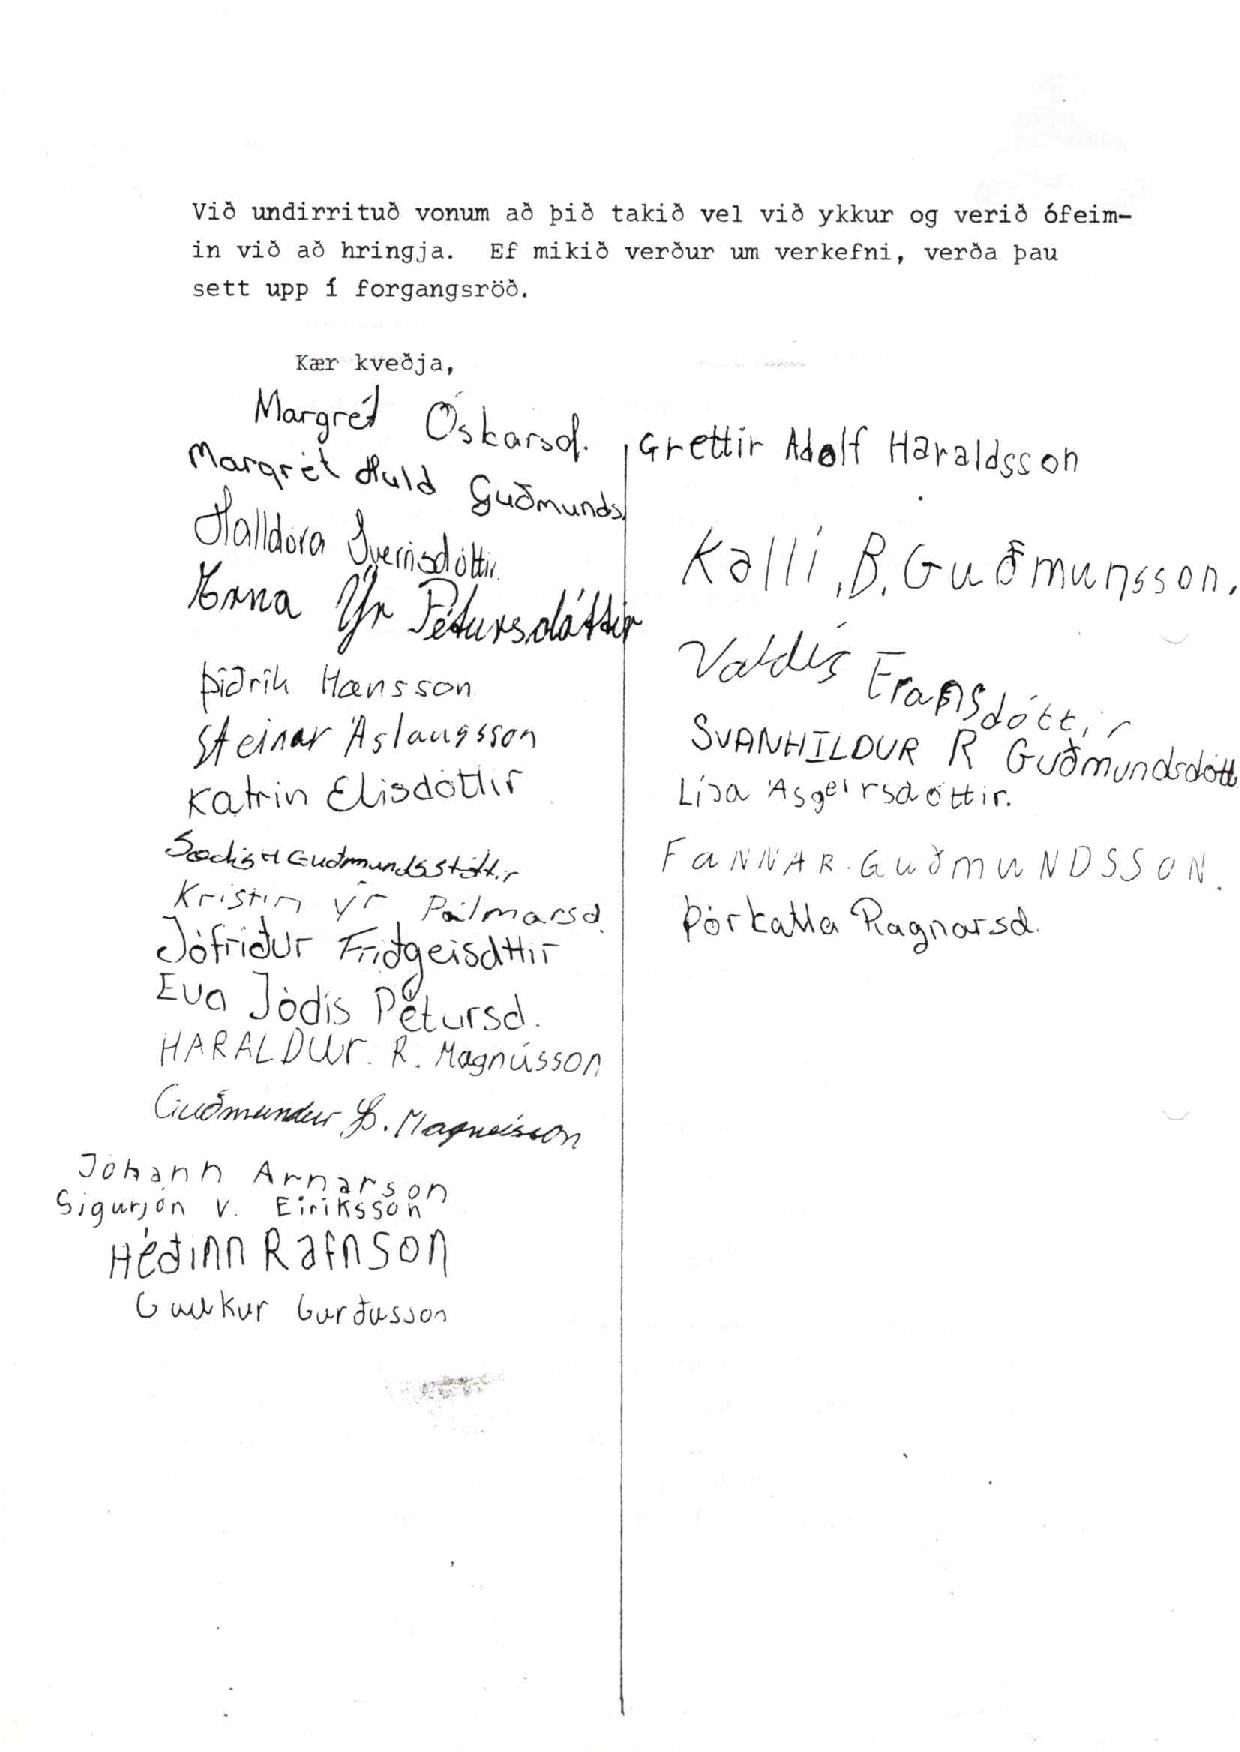 Við undirrituð vonum að þið takið vel við ykkur og verið ófeim-
in við að hringja. Ef mikið verður um verkefni, verða þau
sett upp í forgangsröð.
Kær kveðja,
Margrét Óskarsd.
Margrét Huld Guðmunds
Halldóra Sverrisdóttir
Erna Ýr Pétursdóttir
Þiðrik Hansson
Steinar Áslaugsson
Katrin Elisdóttir
Guðmundsdóttir
Kristin ýr Pálmarsd.
Jófriður Friðgeirsdttir
Eva Jódis Pétursd.
HARALDUr. R. Magnússon
Guðmundur Magnússon
Jóhann Arnarson
Sigurjón V. Eiriksson
Héðinn Rafnson
Grettir Adolf Haraldsson
Kalli. B. Guðmunsson.
Valdís
SVANHILDUR R Guðmundsdótt
Lísa Ásgeirsdóttir.
FaNNAR. GuðmuNDSSON.
Þórkatla Ragnarsd.